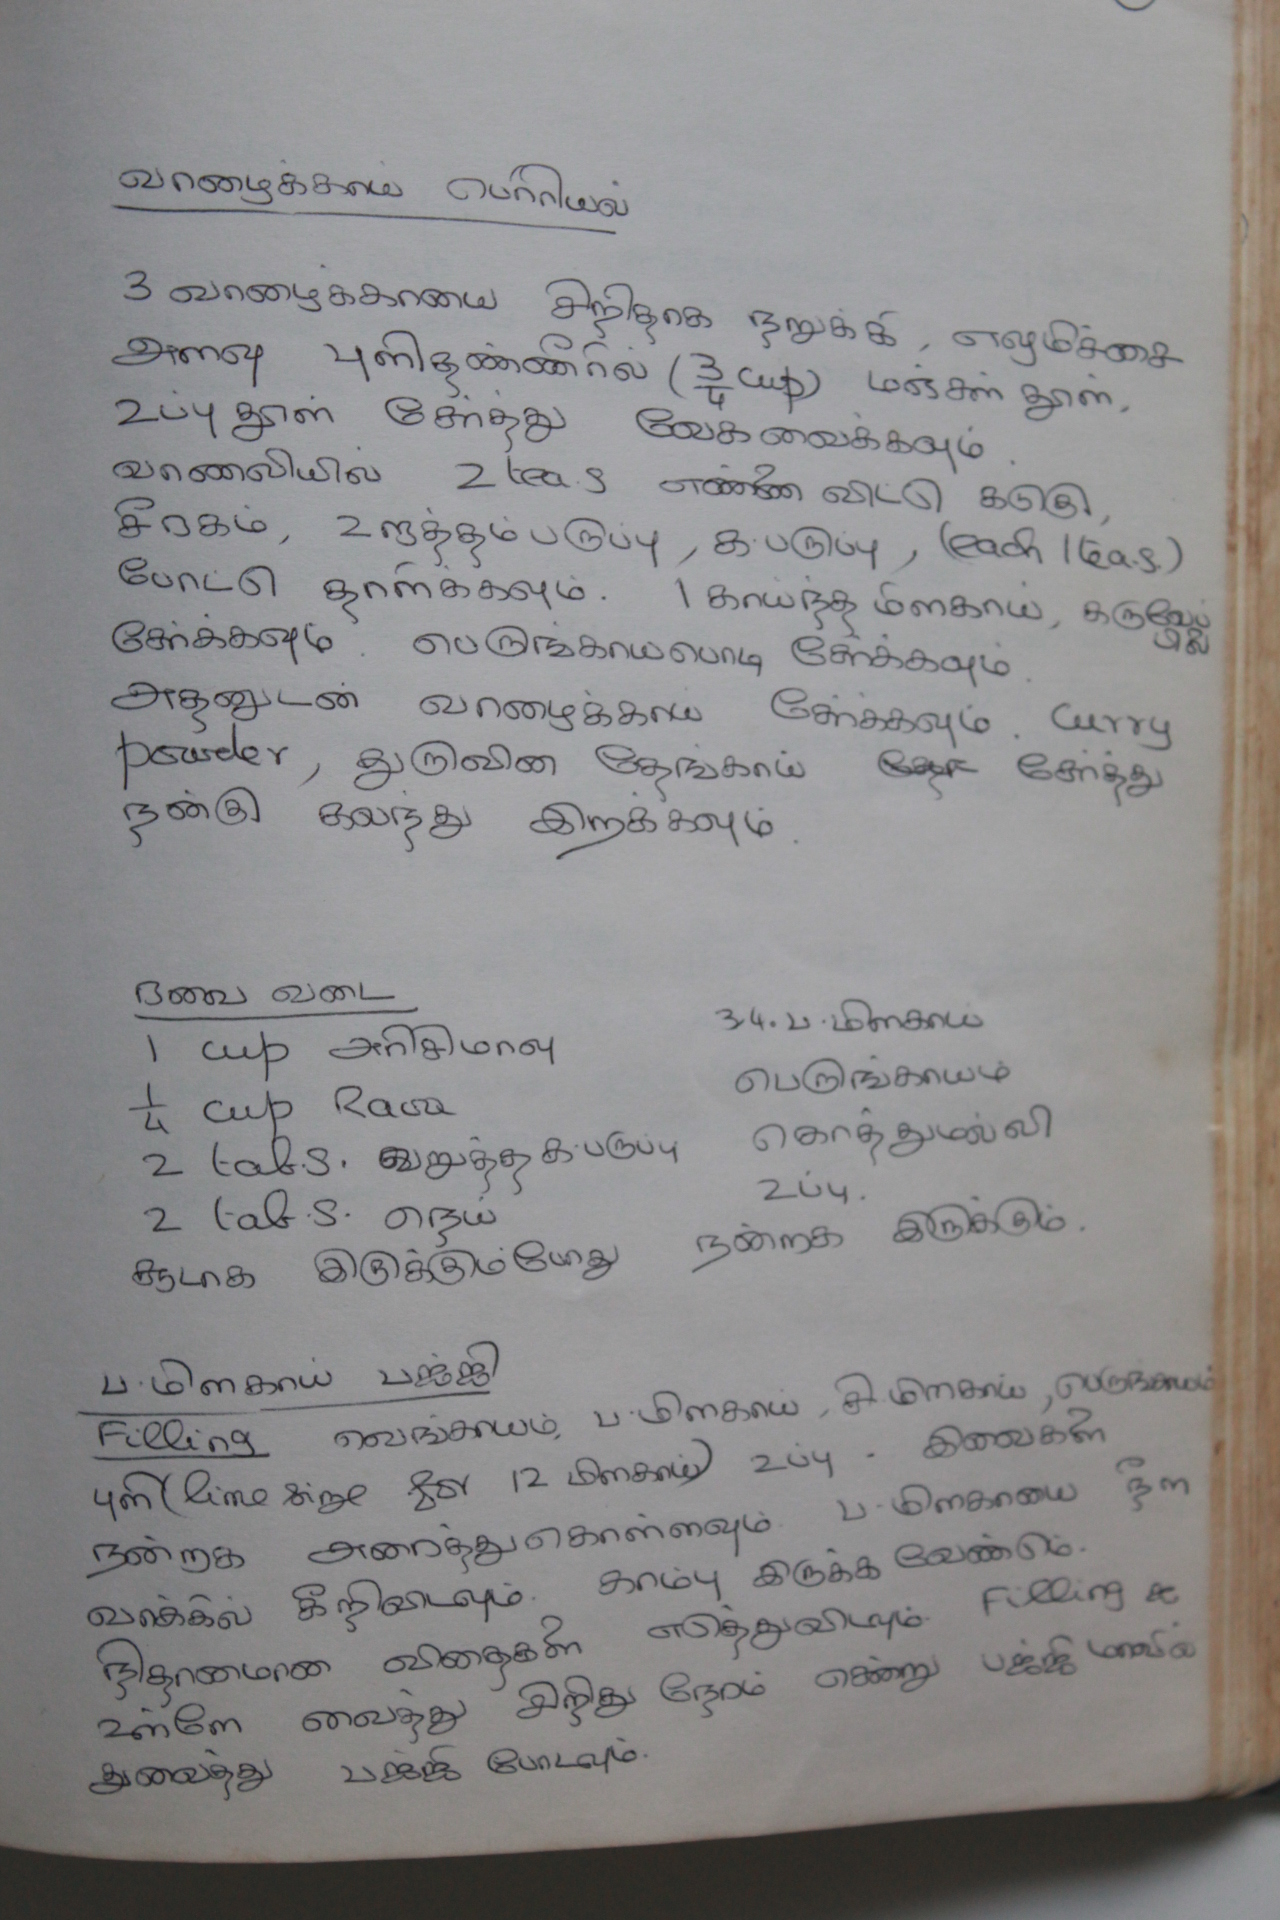 வாழைக்காய் பொரியல்
3 வாழைக்காயை சிறிதாக நறுக்கி, எலுமிச்சை
அளவு புளிதண்ணீரில் (3/4 cup) மஞ்சள் தூள்,
உப்பு தூள் சேர்த்து வேகவைக்கவும்.
வாணலியில் 2 tea.s எண்ணை விட்டு கடுகு,
சீரகம், உளுத்தம் பருப்பு, க.பருப்பு, (each 1 tea.s.)
போட்டு தாளிக்கவும். 1 காய்ந்த மிளகாய், கருவேப்
பில
சேர்க்கவும். பெருங்காயபொடி சேர்க்கவும்.
அதனுடன் வாழைக்காய் சேர்க்கவும். Curry
powder, துருவின தேங்காய் சேர்த்து
நன்கு கலந்து இறக்கவும்.
ரவை வடை
1 cup அரிசிமாவு
1/4 cup Rava
2 tab.s. வறுத்த க.பருப்பு
2 tab.s. நெய்
3.4. ப.மிளகாய்
பெருங்காயம்
கொத்துமல்லி
உப்பு.
சூடாக இருக்கும்போது நன்றாக இருக்கும்.
ப.மிளகாய் பஜ்ஜி
Filling வெங்காயம், ப.மிளகாய், சி.மிளகாய், பெருங்காயம்
புளி (lime size 12 மிளகாய்) உப்பு. இவைகளை
நன்றாக அரைத்துகொள்ளவும். ப.மிளகாயை நீள
வாக்கில் கீறிவிடவும். காம்பு இருக்க வேண்டும்.
நிதானமான விதைகளை எடுத்துவிடவும். Filling ஐ
உள்ளே வைத்து சிறிது நேரம் சென்று பஜ்ஜி மாவில்
துவைத்து பஜ்ஜி போடவும்.